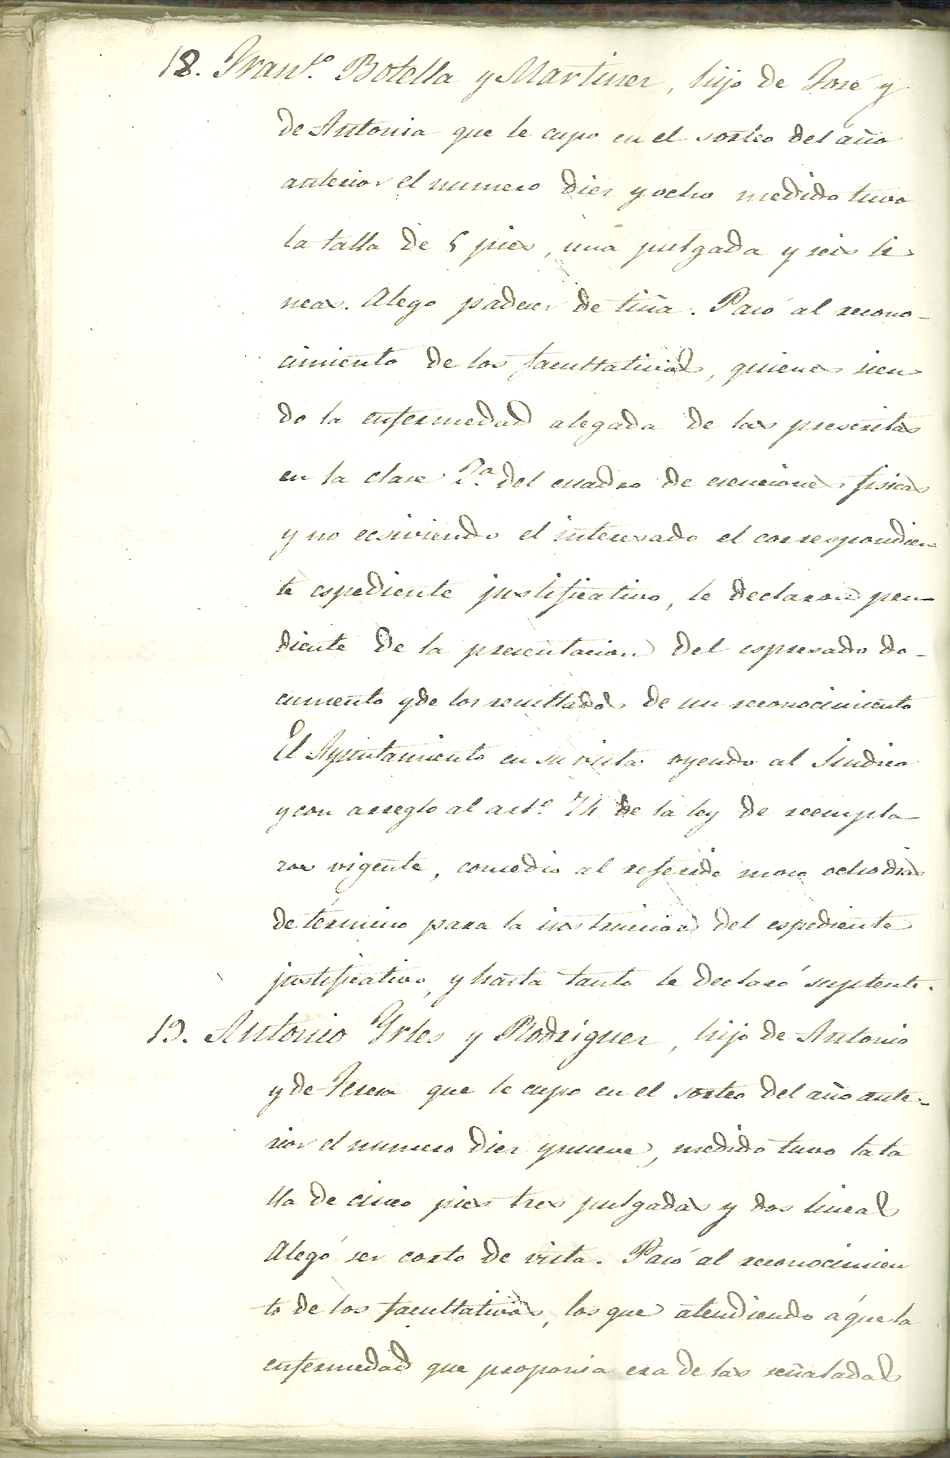 18. Fran.co Botella y Martinez, hijo de José y
de Antonia que le cupo en el sorteo del año
anterior el numero diez y ocho medido tuvo
la talla de 5 pies, una pulgada y seis li
neas. Alego padecer de tiña. Pasó al recono-
cimiento de los facultativos, quienes sien
do la enfermedad alegada de las prescritas
en la clase 2.a del cuadro de esenciones fisicas
y no ecsiviendo el interesado el correspondien
te espediente justificativo, le declaron pen-
diente de la presentacion del espresado do-
cumento y de los resultados de un reconocimiento
El Ayuntamiento en su vista oyendo al Sindico
y con arreglo al art.o 74 de la ley de reempla-
zos vigente, concedio al referido mozo ocho dias
de término para la instruccion del espediente
justificativo, y hasta tanto le declaró suplente.
19. Antonio Yrles y Rodriguez, hijo de Antonio
y de Teresa que le cupo en el sorteo del año ante-
rior el numero diez y nueve, medido tuvo la ta
lla de cinco pies tres pulgadas y dos lineas
Alegó ser corto de vista. Pasó al reconocimien
to de los facultativos, los que atendiendo a que la
enfermedad que proponia era de las señaladas